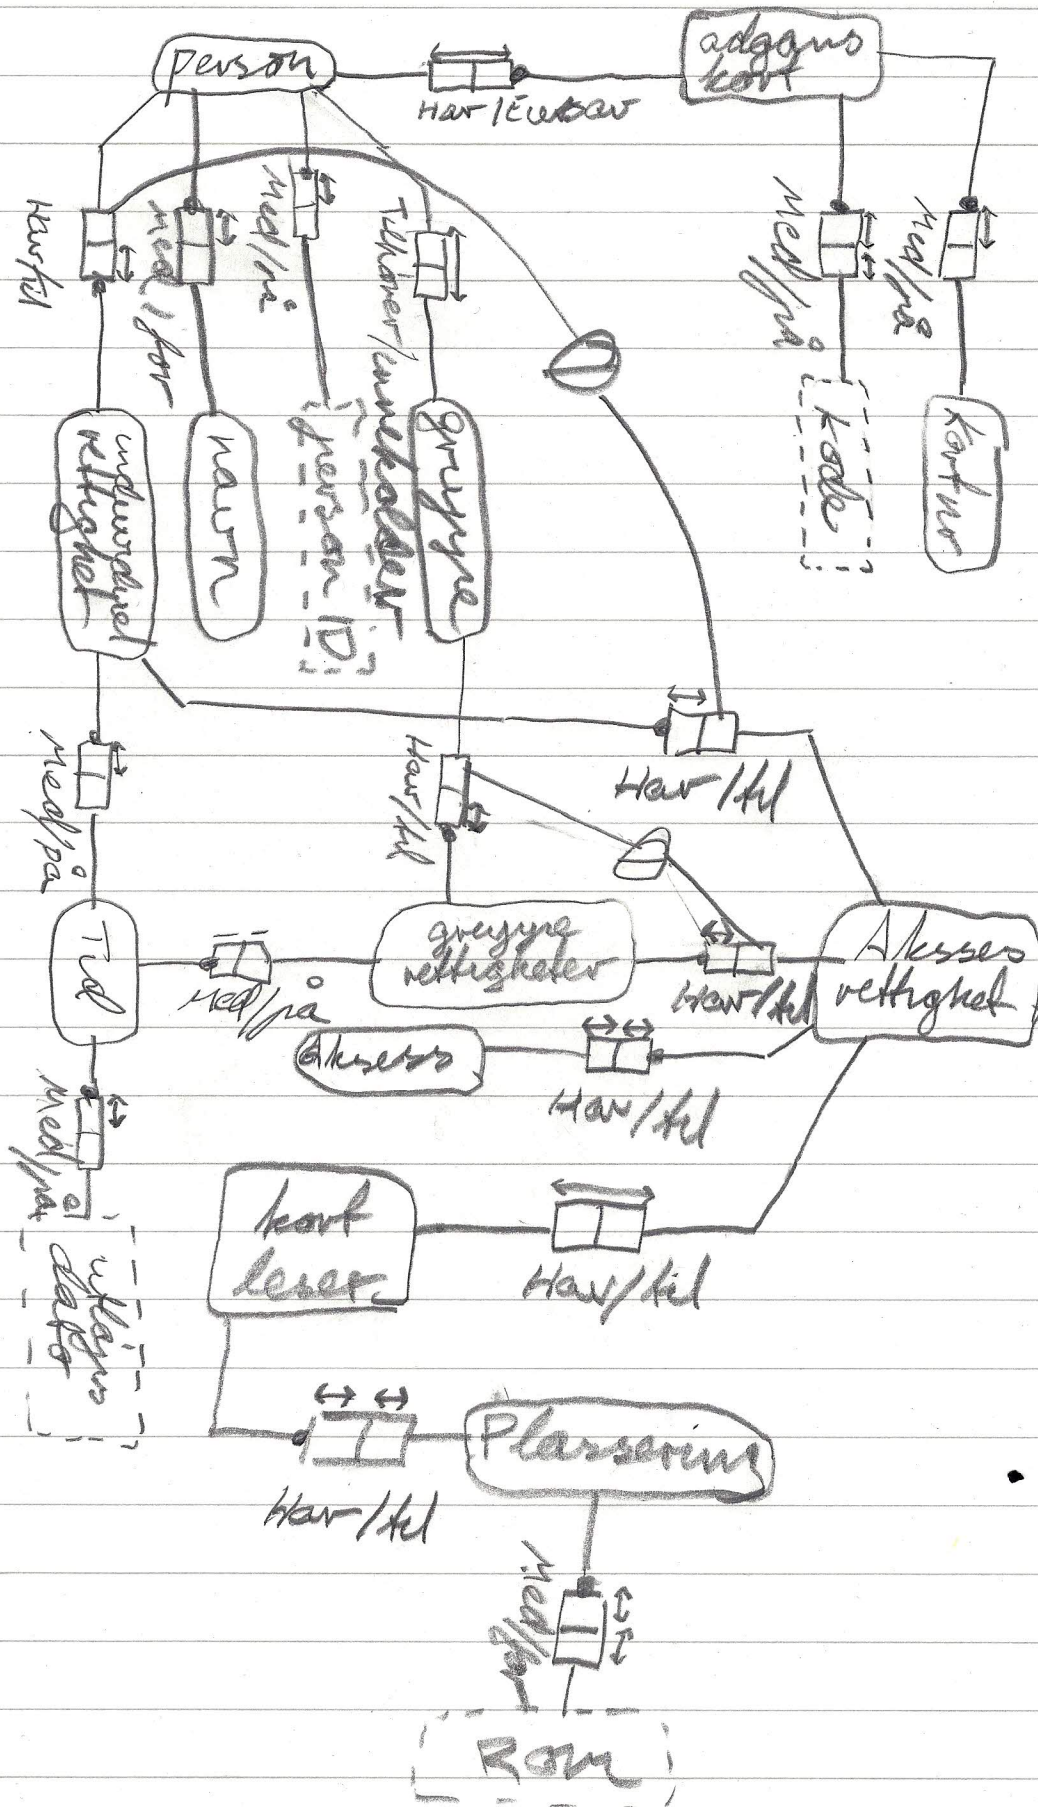 person
adgans
kort
Har/Eies av
Har/til
Med/for
Med/på
Tilhører/inneholder
Med/på
Med/på
individuel
rettighet
navn
person ID
gruppe
kode
kortnr
Har/til
Har/til
Med/på
Tid
Med/på
gruppe
rettigheter
Har/til
Aksses
rettighet
Aksess
Har/til
Med/på
utløps
dato
kort
leser
Har/til
Har/til
Plassering
Med/for
Rom